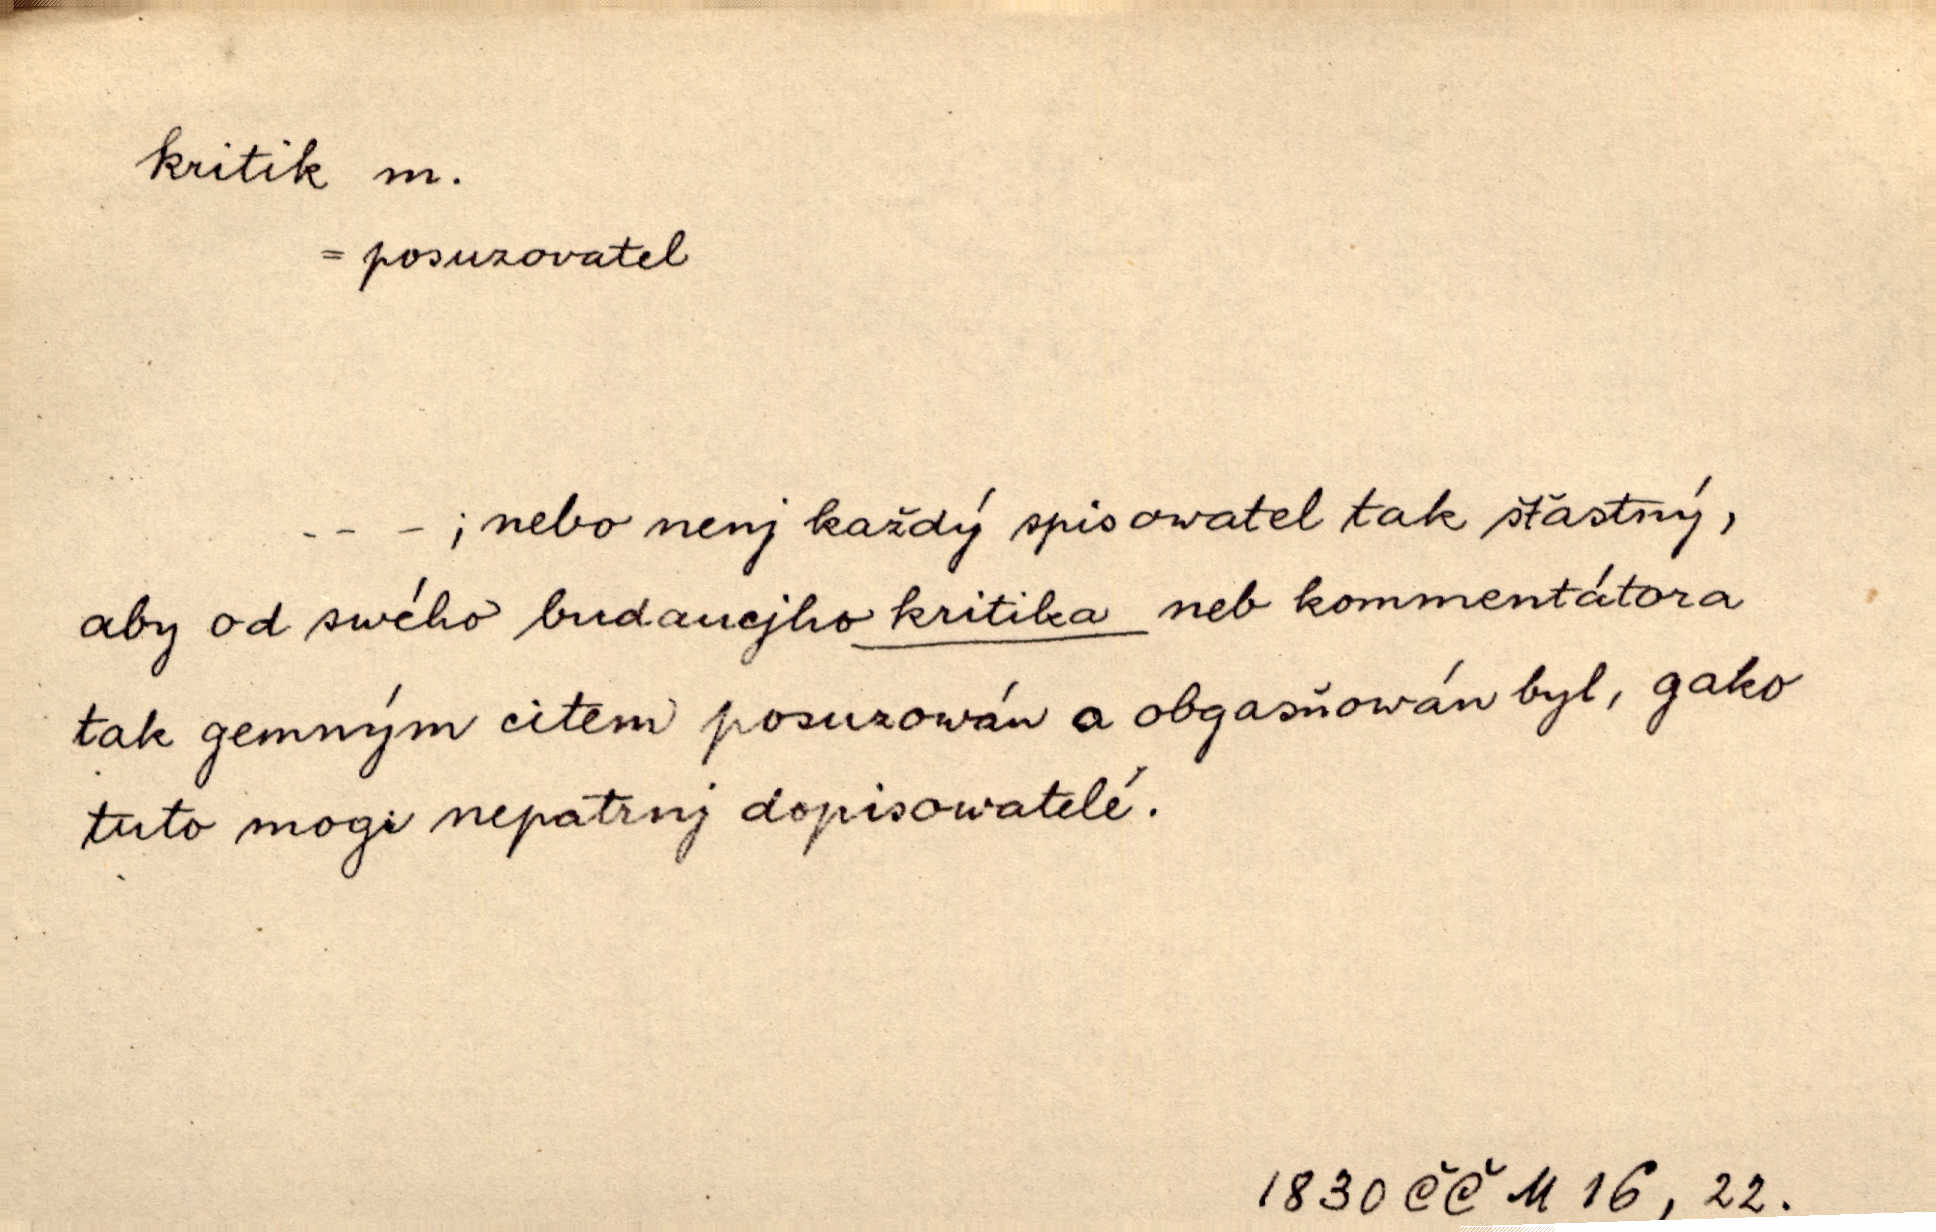 kritik m.
= posuzovatel
- - - ; nebo nenj každý spisowatel tak šťastný,
aby od swého budaucjho kritika neb kommentátora
tak gemným citem posuzowán a obgasňowán byl, gako
tuto mogi nepatrnj dopisowatelé.
1830 ČČM 16, 22.